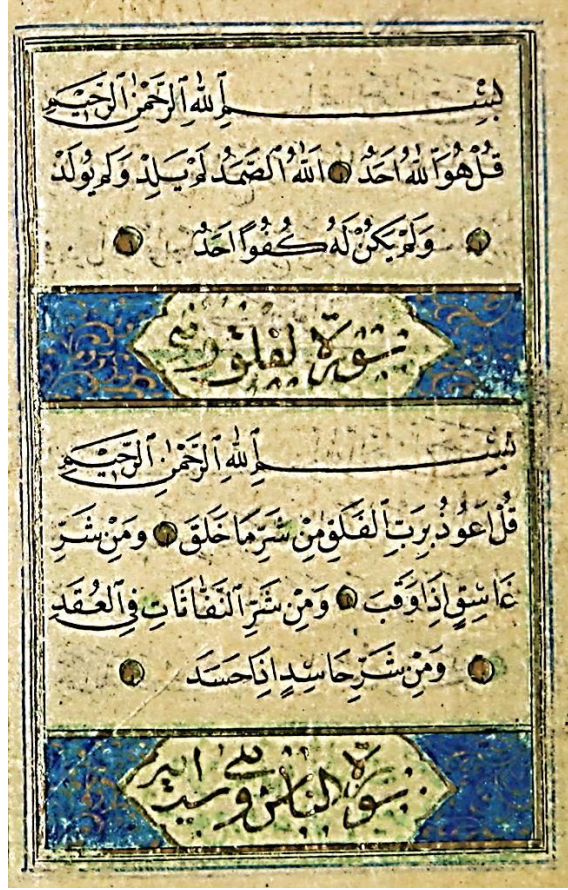 بِسْمِ ٱللهِ ٱلرَّحْمٰنِ ٱلرَّحِيمِ
قُلْ هُوَ ٱللهُ اَحَدٌ اَللهُ ٱلصَّمَدُ لَمْ يَلِدْ وَلَمْ يُولَدْ
وَلَمْ يَكُنْ لَهُ كُفُوًا اَحَدٌ
سورة الفلق
بِسْمِ ٱللهِ ٱلرَّحْمٰنِ ٱلرَّحِيمِ
قُلْ اَعُوذُ بِرَبِّ ٱلفَلَقِ مِنْ شَرِّ مَا خَلَقَ وَمِنْ شَرِّ
غَاسِقٍ اِذَا وَقَبَ وَمِنْ شَرِّ ٱلنَّفَّاثَاتِ فِي ٱلعُقَدِ
وَمِنْ شَرِّ حَاسِدٍ اِذَا حَسَدَ
سورة الناس